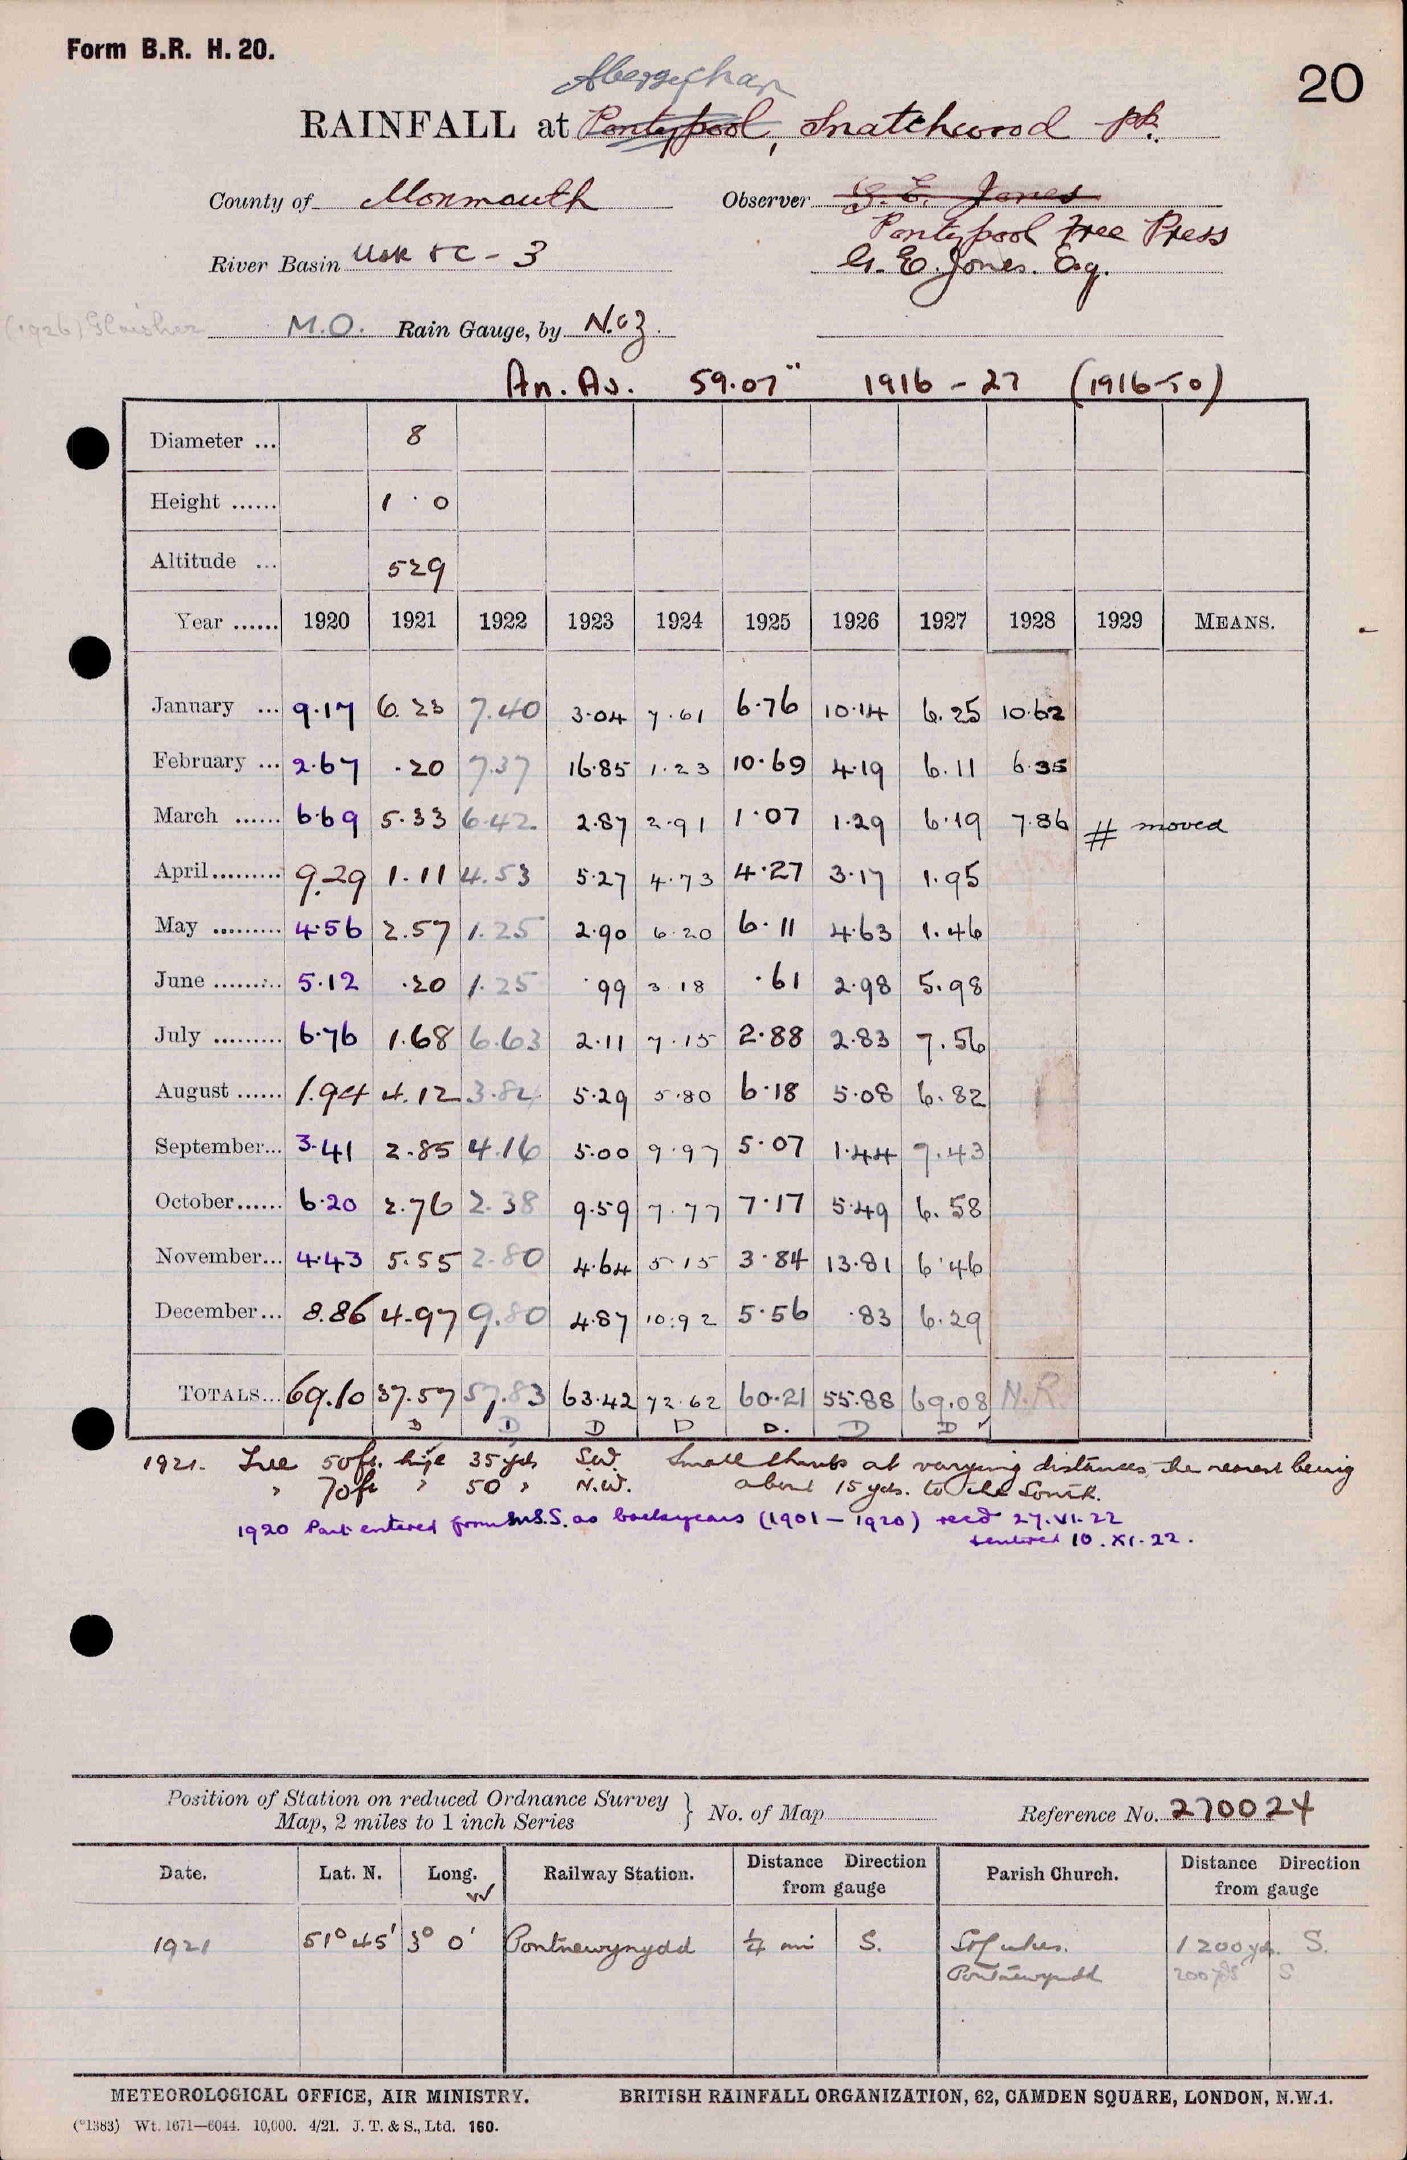 Form B.R. H. 20.
20
Abersychan
RAINFALL at Pontypool, Snatchwood Pk.
County of Monmouth Observer G. E. Jones
Pontypool Free Press
River Basin Usk &c - 3 G. E. Jones. Esq.
(1926) Glaisher M.O. Rain Gauge, by N. & Z.
An. Av. 59.07" 1916 - 27 (1916-50)
Diameter ... 8
Height ...... 1 . 0
Altitude ... 529
Year ...... 1920 1921 1922 1923 1924 1925 1926 1927 1928 1929 MEANS.
January ... 9.17 6.23 7.40 3.04 7.61 6.76 10.14 6.25 10.62
February ... 2.67 .20 7.37 16.85 1.23 10.69 4.19 6.11 6.35
March ...... 6.69 5.33 6.42 2.87 2.91 1.07 1.29 6.19 7.86 # moved
April......... 9.29 1.11 4.53 5.27 4.73 4.27 3.17 1.95
May ......... 4.56 2.57 1.25 2.90 6.20 6.11 4.63 1.46
June ......... 5.12 .20 1.25 .99 3.18 .61 2.98 5.98
July ......... 6.76 1.68 6.63 2.11 7.15 2.88 2.83 7.56
August ...... 1.94 4.12 3.84 5.29 5.80 6.18 5.08 6.82
September... 3.41 2.85 4.16 5.00 9.97 5.07 1.44 7.43
October...... 6.20 2.76 2.38 9.59 7.77 7.17 5.49 6.58
November... 4.43 5.55 2.80 4.64 5.15 3.84 13.81 6.46
December... 8.86 4.97 9.80 4.87 10.92 5.56 .83 6.29
TOTALS... 69.10 37.57 57.83 63.42 72.62 60.21 55.88 69.08 N.R.
D D D D D. D D ✓
1921. Tree 50ft. high 35 yds S.W. Small shrubs at varying distances, the nearest being
" 70ft " 50 " N.W. about 15 yds. to the South.
1920 Part entered from M.S.S. as back years (1901 - 1920) recd 27.VI.22
& entered 10.XI.22.
Position of Station on reduced Ordnance Survey
Map, 2 miles to 1 inch Series } No. of Map Reference No. 270024
Date. Lat. N. Long. W Railway Station. Distance Direction from gauge Parish Church. Distance Direction from gauge
1921 51° 45' 3° 0' Pontnewynydd ¼ mi S. St Lukes. 1200 yds. S.
Pontnewynydd 200 yds S
METEOROLOGICAL OFFICE, AIR MINISTRY. BRITISH RAINFALL ORGANIZATION, 62, CAMDEN SQUARE, LONDON, N.W.1.
(*1383) Wt. 1671—6044. 10,000. 4/21. J. T. & S., Ltd. 160.